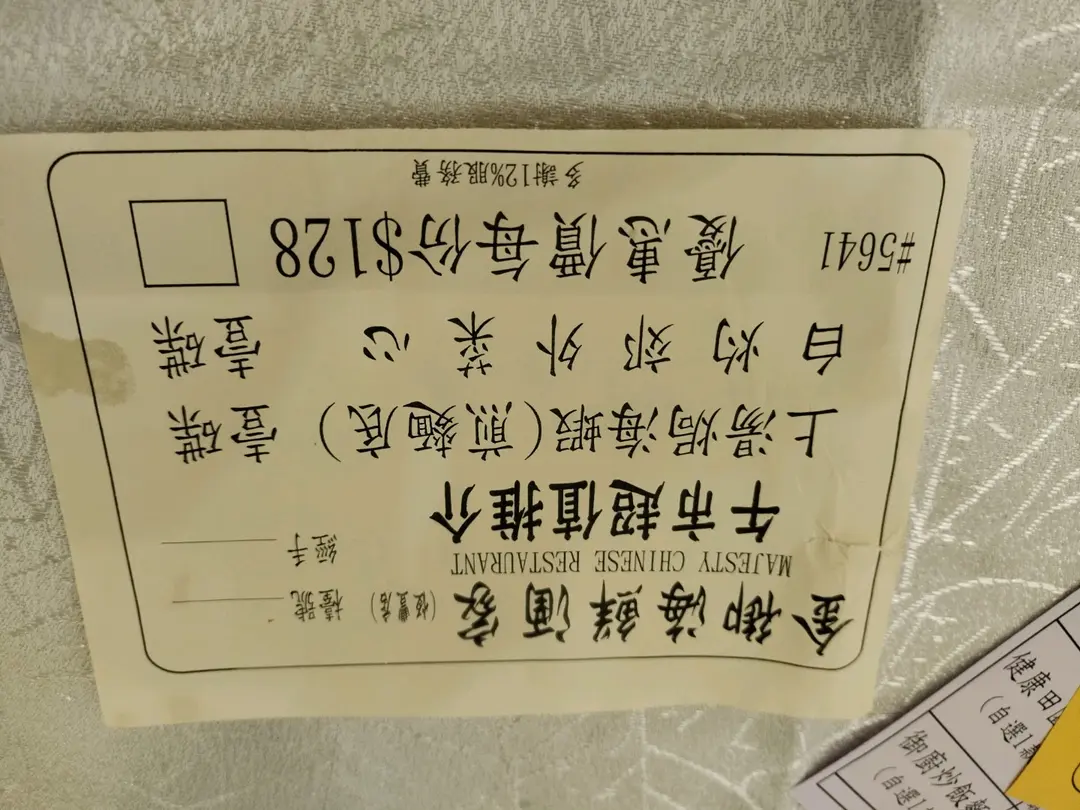 金御海鮮酒家 (恆豐店) 檯號
MAJESTY CHINESE RESTAURANT
經手
午市超值推介
上湯焗海蝦(煎麵底) 壹碟
白灼郊外菜心 壹碟
#5641 優惠價每份$128
多謝12%服務費
健康田
(自選1
御廚炒飯
(自選1